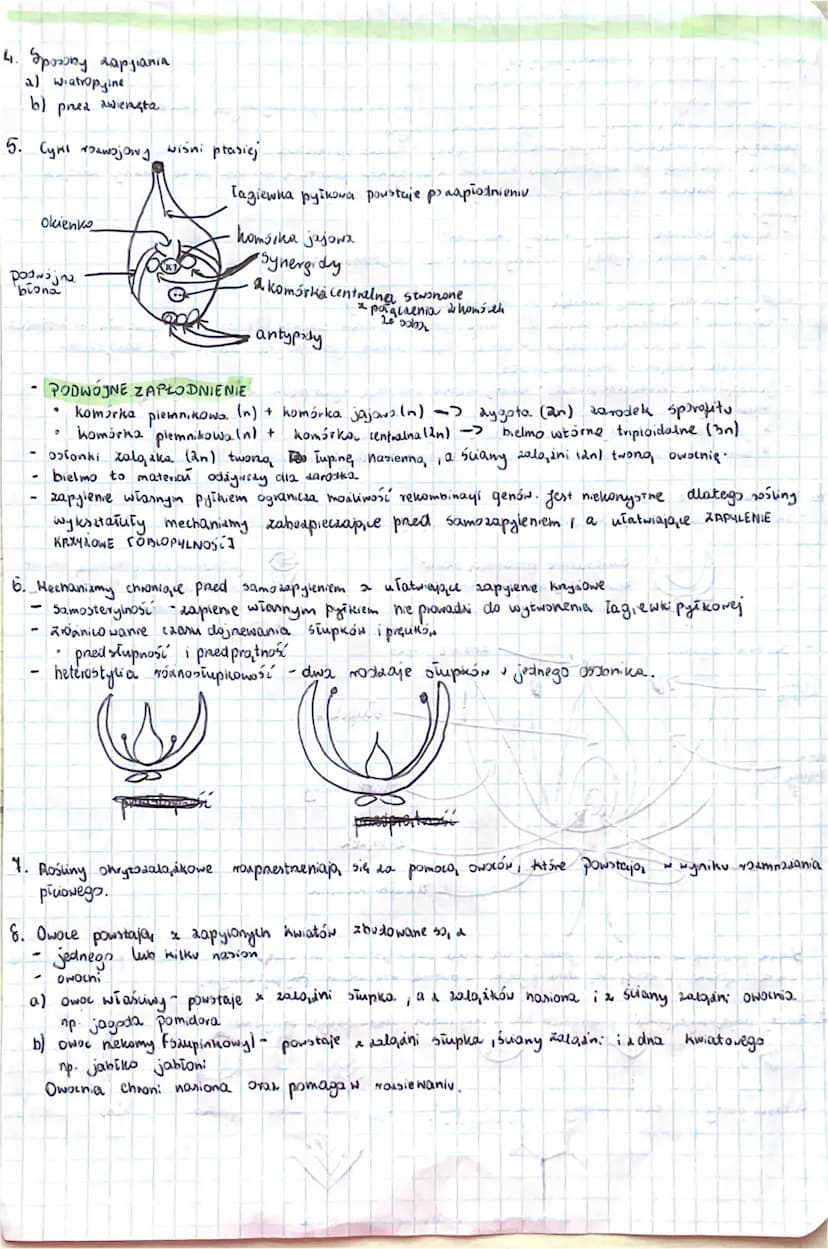 4. Sposoby zapylania
a) wiatropylne
b) przez zwierzęta
5. Cykl rozwojowy wiśni ptasiej
łagiewka pyłkowa powstaje po zapłodnieniu
okienko
komórka jajowa
synergidy
podwójna
błona
komórka centralna stworzone
z połączenia 2 komórek
antypody
- PODWÓJNE ZAPŁODNIENIE
• komórka plemnikowa (n) + komórka jajowa (n) -> zygota (2n) zarodek sporofitu
• komórka plemnikowa (n) + komórka centralna (2n) -> bielmo wtórne triploidalne (3n)
- osłonki zalążka (2n) tworzą łupinę nasienną, a ściany zalążni (2n) tworzą owocnię.
- bielmo to materiał odżywczy dla zarodka
- zapylenie własnym pyłkiem ogranicza możliwość rekombinacji genów. Jest niekorzystne dlatego rośliny
wykształciły mechanizmy zabezpieczające przed samozapyleniem, a ułatwiające ZAPYLENIE
KRZYŻOWE [OBCOPYLNOŚĆ]
6. Mechanizmy chroniące przed samozapyleniem a ułatwiające zapylenie krzyżowe
- samosterylność - zapylenie własnym pyłkiem nie prowadzi do wytworzenia łagiewki pyłkowej
- zróżnicowanie czasu dojrzewania słupków i pręcików
• przedsłupność i przedprątność
- heterostylia różnosłupkowość - dwa rodzaje słupków u jednego osobnika.
7. Rośliny okrytozalążkowe rozprzestrzeniają się za pomocą owoców, które powstają w wyniku rozmnażania
płciowego.
8. Owoce powstają z zapylonych kwiatów zbudowane są z
- jednego lub kilku nasion
- owocni
a) owoc właściwy - powstaje z zalążni słupka, a z zalążków nasiona i z ściany zalążni owocnia
np. jagoda pomidora
b) owoc rzekomy [szupinkowy] - powstaje z zalążni słupka, ściany zalążni i z dna kwiatowego
np. jabłko jabłoni
Owocnia chroni nasiona oraz pomaga w rozsiewaniu.